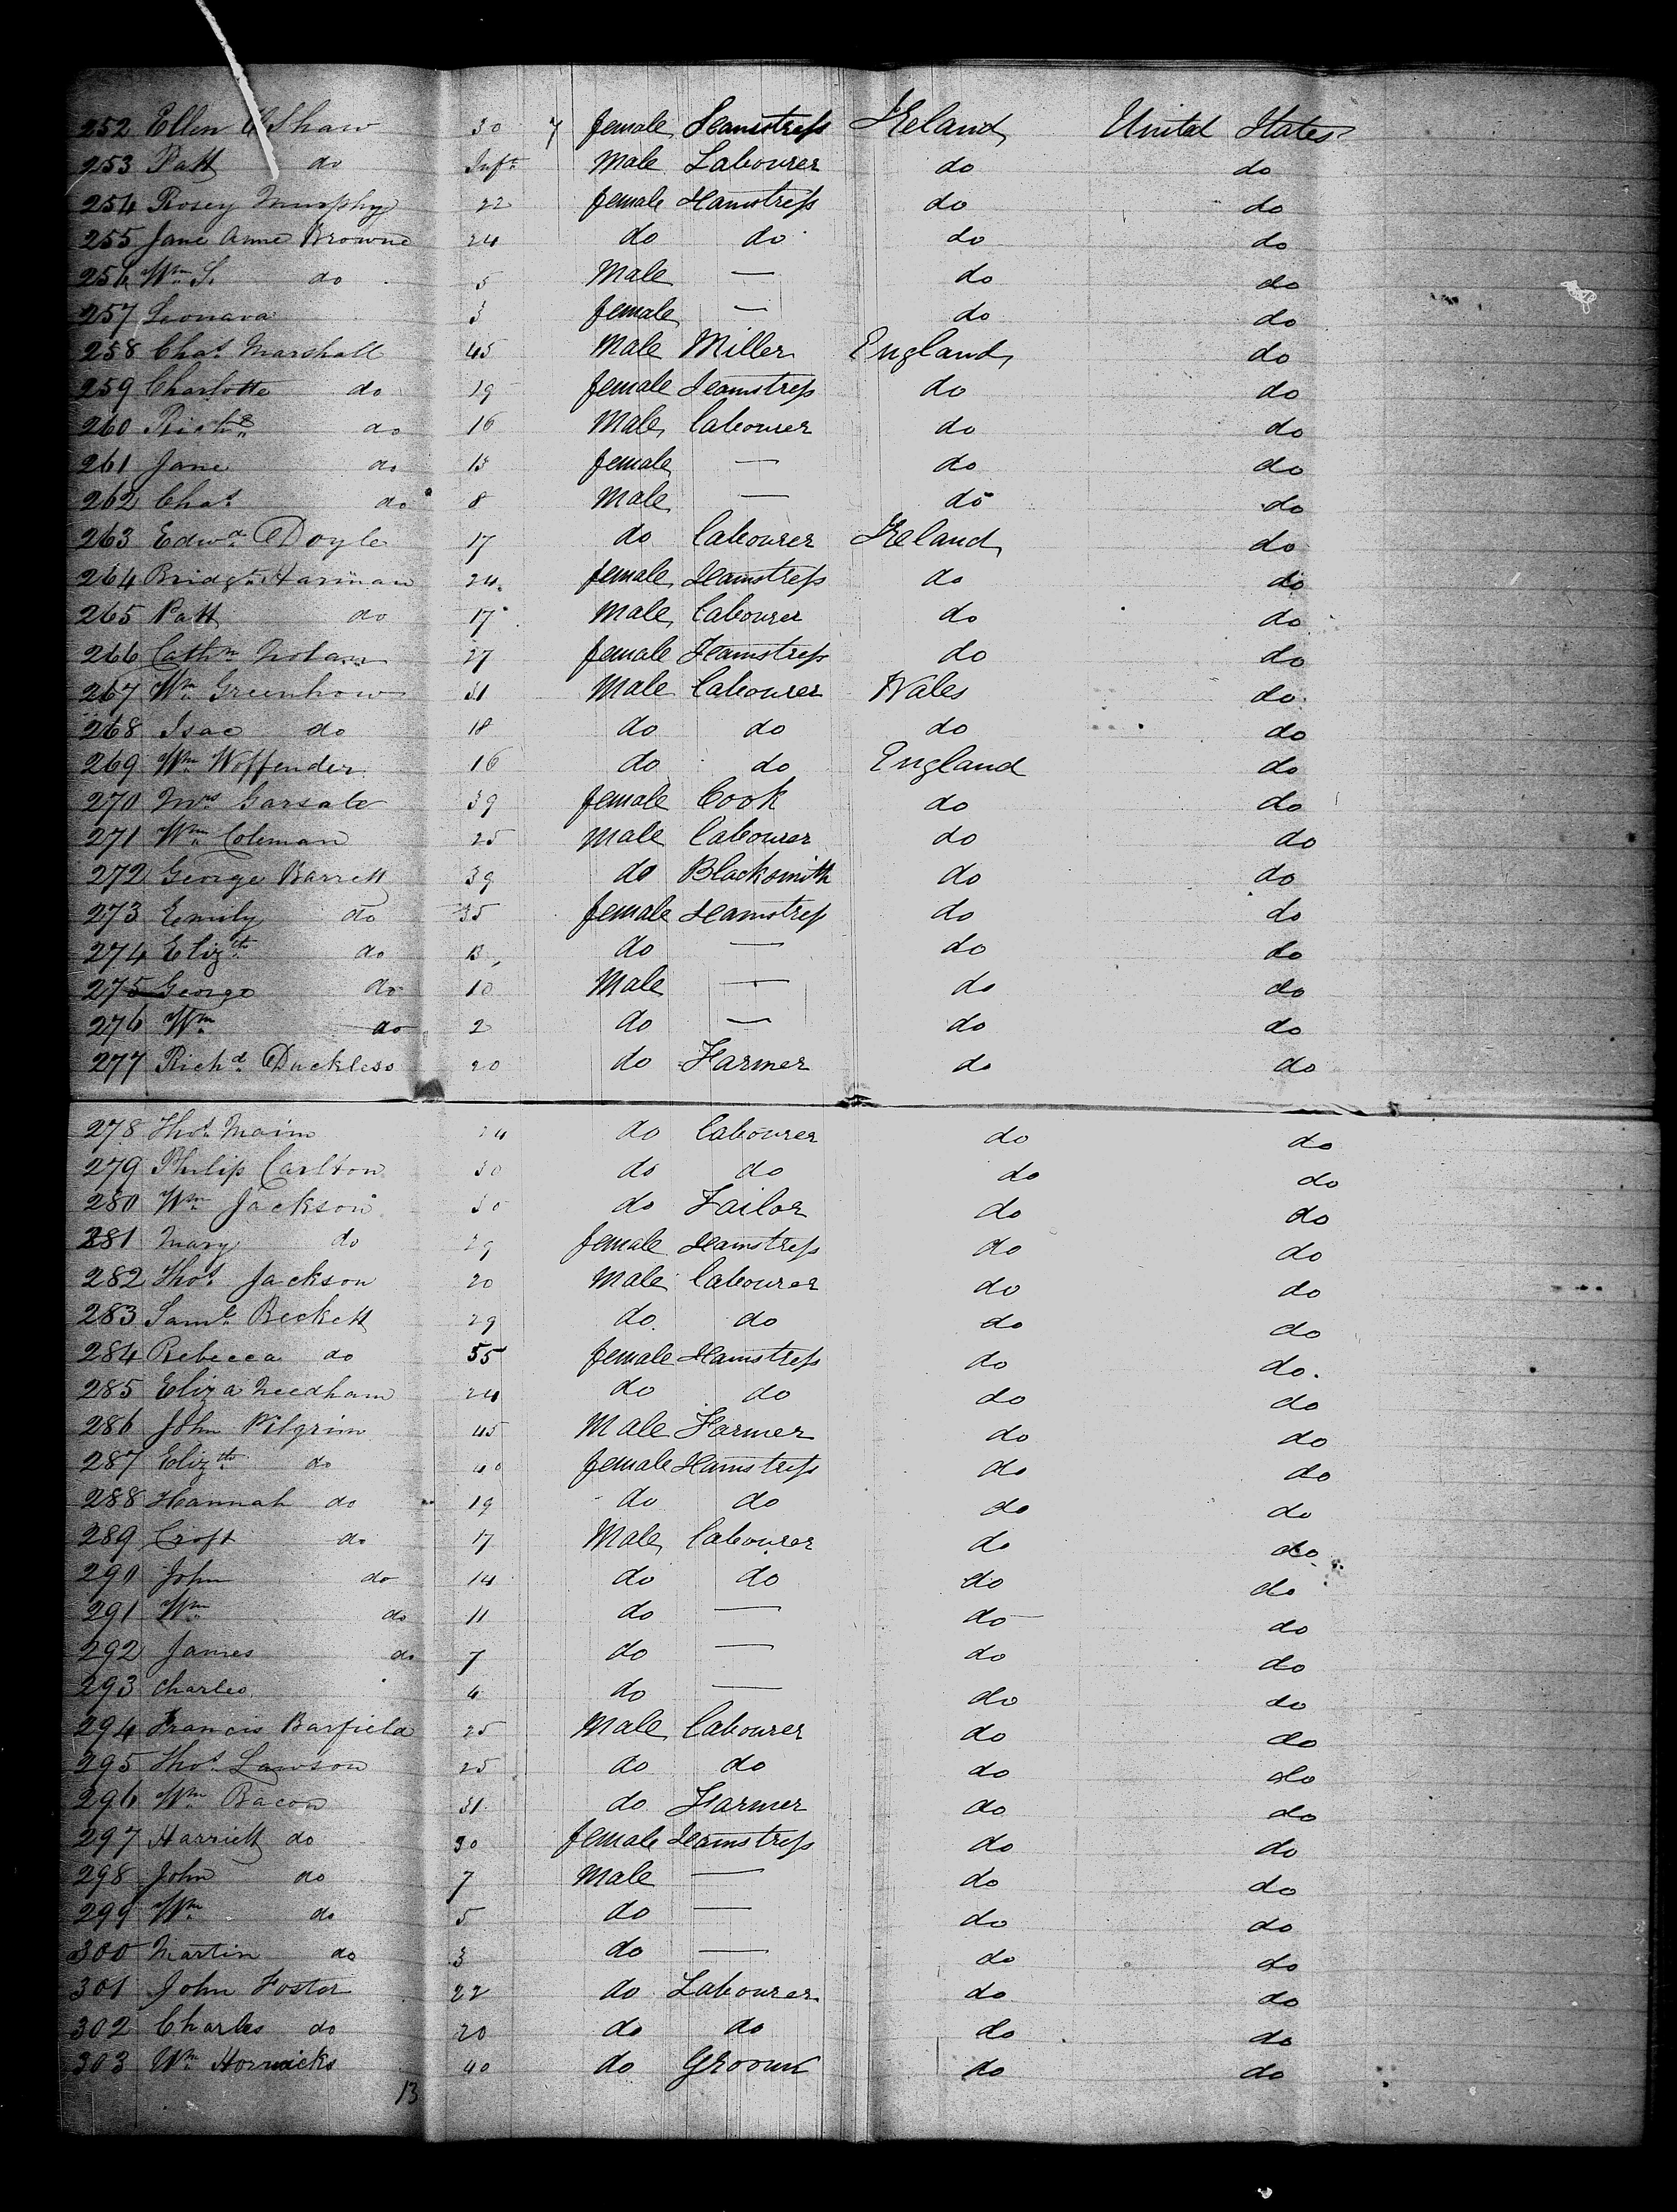 252 Ellen O'Shaw 30 7 female Seamstress Ireland United States
253 Patt do Inft male Labourer do do
254 Rosey Murphy 22 female Seamstress do do
255 Jane Anne Browne 24 do do do do
256 Wm S. do 5 Male — do do
257 Leonara 3 female — do do
258 Chas. Marshall 45 Male Miller England do
259 Charlotte do 19 female Seamstress do do
260 Richd do 16 Male Labourer do do
261 Jane do 13 female — do do
262 Chas. do 8 Male — do do
263 Edwd. Doyle 17 do Labourer Ireland do
264 Bridgt. Harinan 24 female Seamstress do do
265 Patt do 17 Male Labourer do do
266 Cathn. Nolan 27 female Seamstress do do
267 Wm Greenhow 31 Male Labourer Wales do
268 Isac do 18 do do do do
269 Wm Woffender 16 do do England do
270 Mrs Garsate 39 female Cook do do
271 Wm Coleman 25 male Labourer do do
272 George Barrett 39 do Blacksmith do do
273 Emily do 35 female Seamstress do do
274 Elizth do 13 do — do do
275 George do 10 Male — do do
276 Wm do 2 do — do do
277 Richd. Duckless 20 do Farmer do do
278 Thos. Maim 24 do Labourer do do
279 Philip Carlton 30 do do do do
280 Wm Jackson 30 do Tailor do do
281 Mary do 29 female Seamstress do do
282 Thos. Jackson 20 Male Labourer do do
283 Saml. Beckett 29 do do do do
284 Rebecca do 55 female Seamstress do do.
285 Eliza Needham 24 do do do do
286 John Pilgrim 45 Male Farmer do do
287 Elizth do 40 female Seamstress do do
288 Hannah do 19 do do do do
289 Croft do 17 Male Labourer do do
290 John do 14 do do do do
291 Wm do 11 do — do do
292 James do 7 do — do do
293 Charles 4 do — do do
294 Francis Barfield 25 Male Labourer do do
295 Thos. Lawson 25 do do do do
296 Wm Bacon 31 do Farmer do do
297 Harriett do 30 female Seamstress do do
298 John do 7 Male — do do
299 Wm do 5 do — do do
300 Martin do 3 do — do do
301 John Foster 22 do Labourer do do
302 Charles do 20 do do do do
303 Wm Horwicks 40 do Groom do do
13